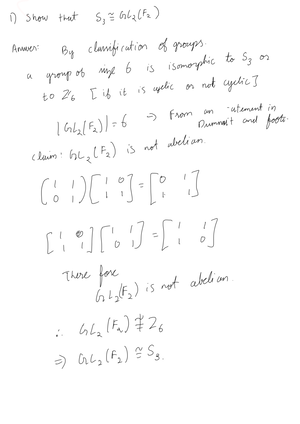 1) Show that S₃ ≅ GL₂(F₂)
Answer: By classification of groups.
a group of size 6 is isomorphic to S₃ or
to Z₆ [if it is cyclic or not cyclic]
|GL₂(F₂)| = 6 ⇒ From an in
Dummit and foote.
Claim: GL₂(F₂) is not abelian.
(1 1; 0 1) [1 0; 1 1] = [0 1; 1 1]
[1 0; 1 1] [1 1; 0 1] = [1 1; 1 0]
There fore
GL₂(F₂) is not abelian.
∴ GL₂(F₂) ≇ Z₆
⇒ GL₂(F₂) ≅ S₃.